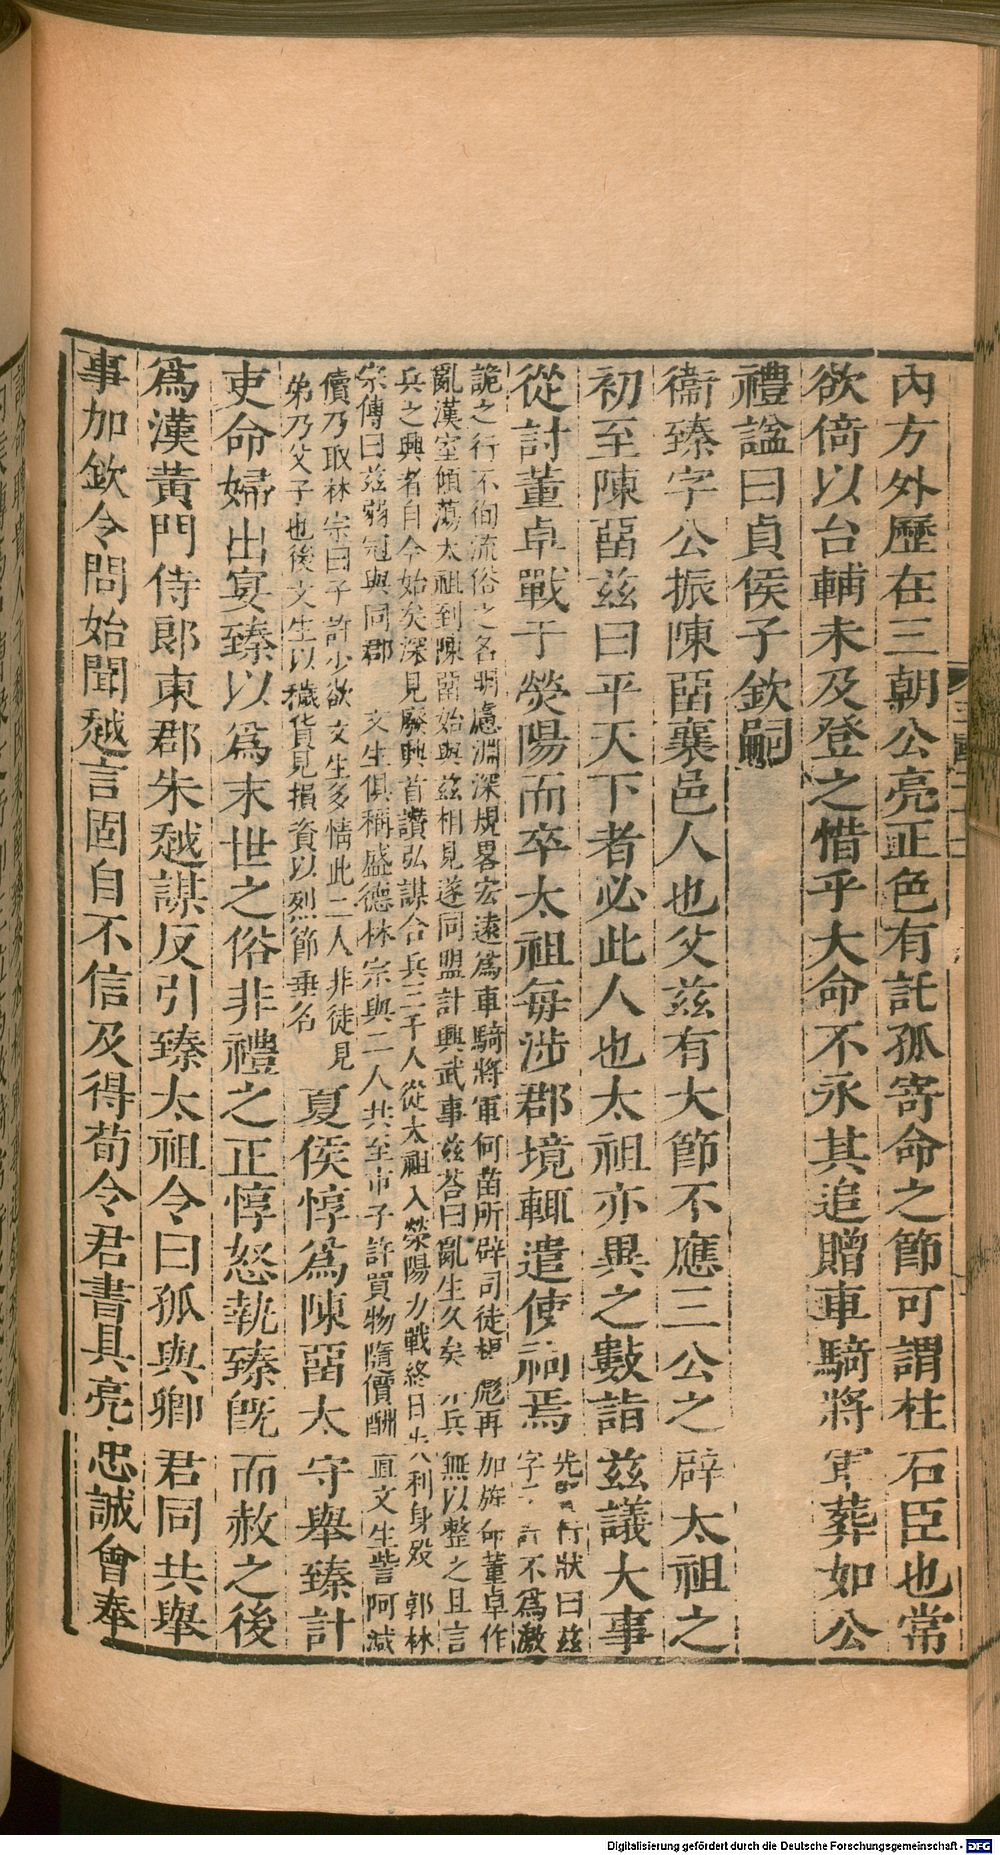 內方外歷在三朝公亮正色有託孤寄命之節可謂柱石臣也常
欲倚以台輔未及登之惜乎大命不永其追贈車騎將軍葬如公
禮諡曰貞侯子欽嗣
衞臻字公振陳畱襄邑人也父茲有大節不應三公之辟太祖之
初至陳畱茲曰平天下者必此人也太祖亦異之數詣茲議大事
從討董卓戰于滎陽而卒太祖每涉郡境輒遣使祠焉
先行狀曰茲
字不爲激
詭之行不徇流俗之名明慮淵深規畧宏遠爲車騎將軍何苗所辟司徒彪再加旌命董卓作
亂漢室傾蕩太祖到陳畱始與茲相見遂同盟計興武事茲荅曰亂生久矣兵無以整之且言
兵之興者自今始矣深見廢興首讚弘謀合兵三千人從太祖入滎陽力戰終日失利身歿 郭林
宗傳曰茲弱冠與同郡 文生俱稱盛德林宗與二人共至市子許買物隨價酬直文生訾呵減
價乃取林宗曰子許少欲文生多情此二人非徒見
弟乃父子也後文生以穢貨見損資以烈節垂名
夏侯惇爲陳畱太守舉臻計
吏命婦出宴臻以爲末世之俗非禮之正惇怒執臻旣而赦之後
爲漢黃門侍郞東郡朱越謀反引臻太祖令曰孤與卿君同共舉
事加欽令問始聞越言固自不信及得荀令君書具亮忠誠會奉
Digitalisierung gefördert durch die Deutsche Forschungsgemeinschaft - DFG